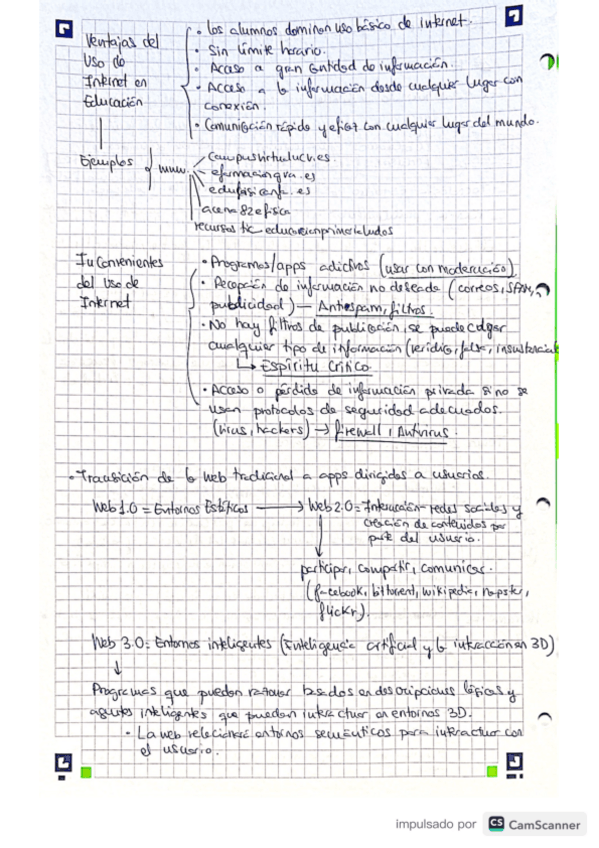 Ventajas del
Uso de
Internet en
Educación
• Los alumnos dominan uso básico de internet.
• Sin límite horario.
• Acceso a gran cantidad de información.
• Acceso a la información desde cualquier lugar con
conexión.
• Comunicación rápida y eficaz con cualquier lugar del mundo.
Ejemplos
www.
campusvirtualucv.es
eformaciongva.es
edufisicarte.es
acena82efisica
recursos tic educacionprimarialudos
Inconvenientes
del Uso de
Internet
• Programas/apps adictivos (usar con moderación)
• Recepción de información no deseada (correos, SPAM,
publicidad) — Antiespam, filtros.
• No hay filtros de publicación, se puede colgar
cualquier tipo de información (verídica, falsa, insustancial
↳ Espíritu Crítico.
• Acceso o pérdida de información privada si no se
usan protocolos de seguridad adecuados.
(virus, hackers) → firewall, Antivirus.
• Transición de la web tradicional a apps dirigidas a usuarios.
Web 1.0 = Entornos Estáticos → Web 2.0 = Interacción - redes sociales y
creación de contenidos por
parte del usuario.
participar, compartir, comunicar.
(facebook, bittorrent, wikipedia, napster,
flickr).
Web 3.0: Entornos inteligentes (Inteligencia artificial y la interacción en 3D)
↓
Programas que puedan razonar basados en descripciones lógicas y
agentes inteligentes que puedan interactuar en entornos 3D.
• La web relacionará entornos semánticos para interactuar con
el usuario.
impulsado por CS CamScanner